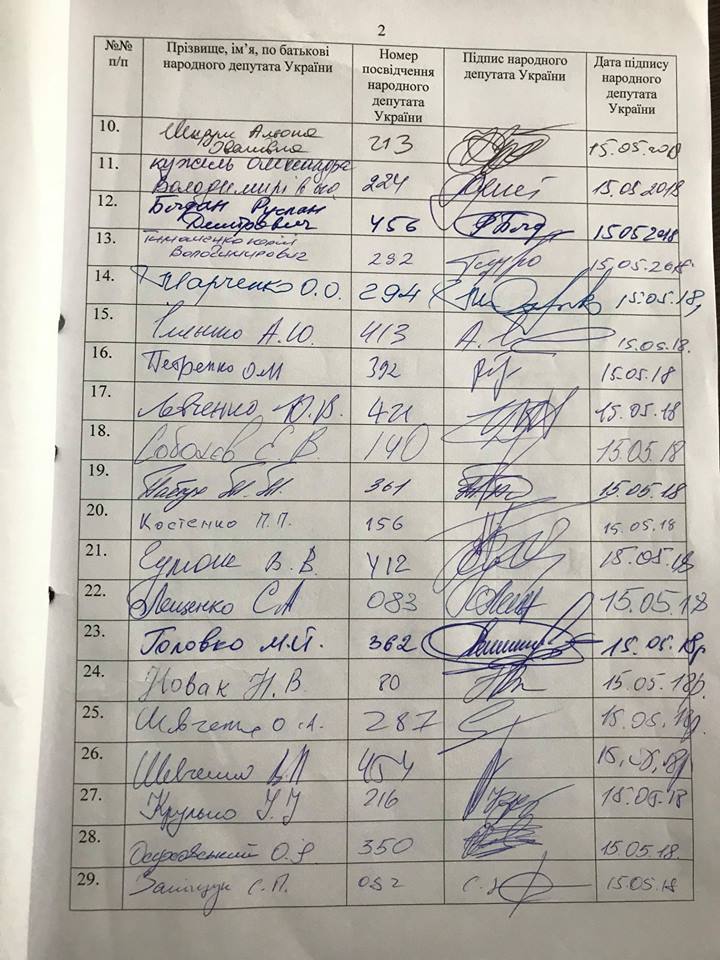 2
№№ п/п
Прізвище, ім’я, по батькові народного депутата України
Номер посвідчення народного депутата України
Підпис народного депутата України
Дата підпису народного депутата України
10. Шкрум Альона Іванівна 213 15.05.2018
11. Кужель Олександра Володимирівна 224 15.05.2018
12. Богдан Руслан Дмитрович 456 15.05.2018
13. Тимошенко Юрій Володимирович 232 15.05.2018
14. Марченко О.О. 294 15.05.18р
15. Іллєнко А.Ю. 413 15.05.18.
16. Петренко О.М 392 15.05.18
17. Левченко Ю.В. 421 15.05.18
18. Соболєв Є.В. 140 15.05.18
19. 361 15.05.18
20. Костенко П.П. 156 15.05.18
21. В.В. 412 15.05.18
22. Лещенко С.А 083 15.05.18
23. Головко М.Й. 362 15.05.18р
24. Новак Н.В. 80 15.05.18р.
25. Шевченко О.Л. 287 15.05.18р.
26. Шевченко В.Л 454
27. Крулько І.І 216 15.05.18
28. 350 15.05.18.
29. Заліщук С.П. 052 15.05.18